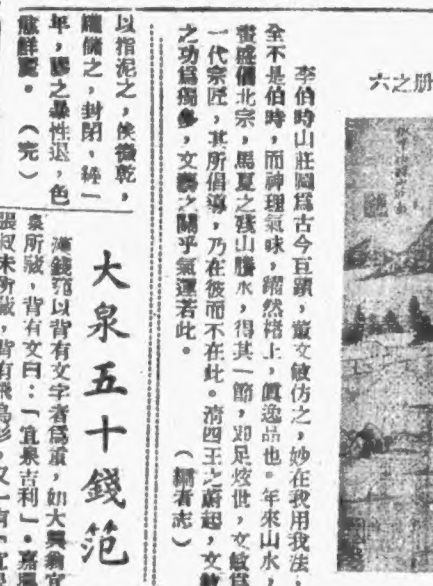 六之册
李伯時山莊圖爲古今巨蹟,董文敏仿之,妙在我用我法,
全不是伯時,而神理氣味,躍然楮上,眞逸品也。年來山水,
畫盛倡北宗,馬夏之殘山賸水,得其一節,卽足炫世,文敏爲
一代宗匠,其所倡導,乃在彼而不在此。淸四王之蔚起,文敏
之功爲獨多,文藝之關乎氣運若此。 (編者志)
以指泥之,俟微乾,
儲之,封閉,經一
年,膠之暴性退,色
愈鮮麗。 (完)
大泉五十錢范
漢錢范以背有文字者爲重,如大興翁宜
泉所藏,背有文曰:「宜泉吉利」。嘉興
張叔未所藏,背有飛鳥形。又一有「宜泉